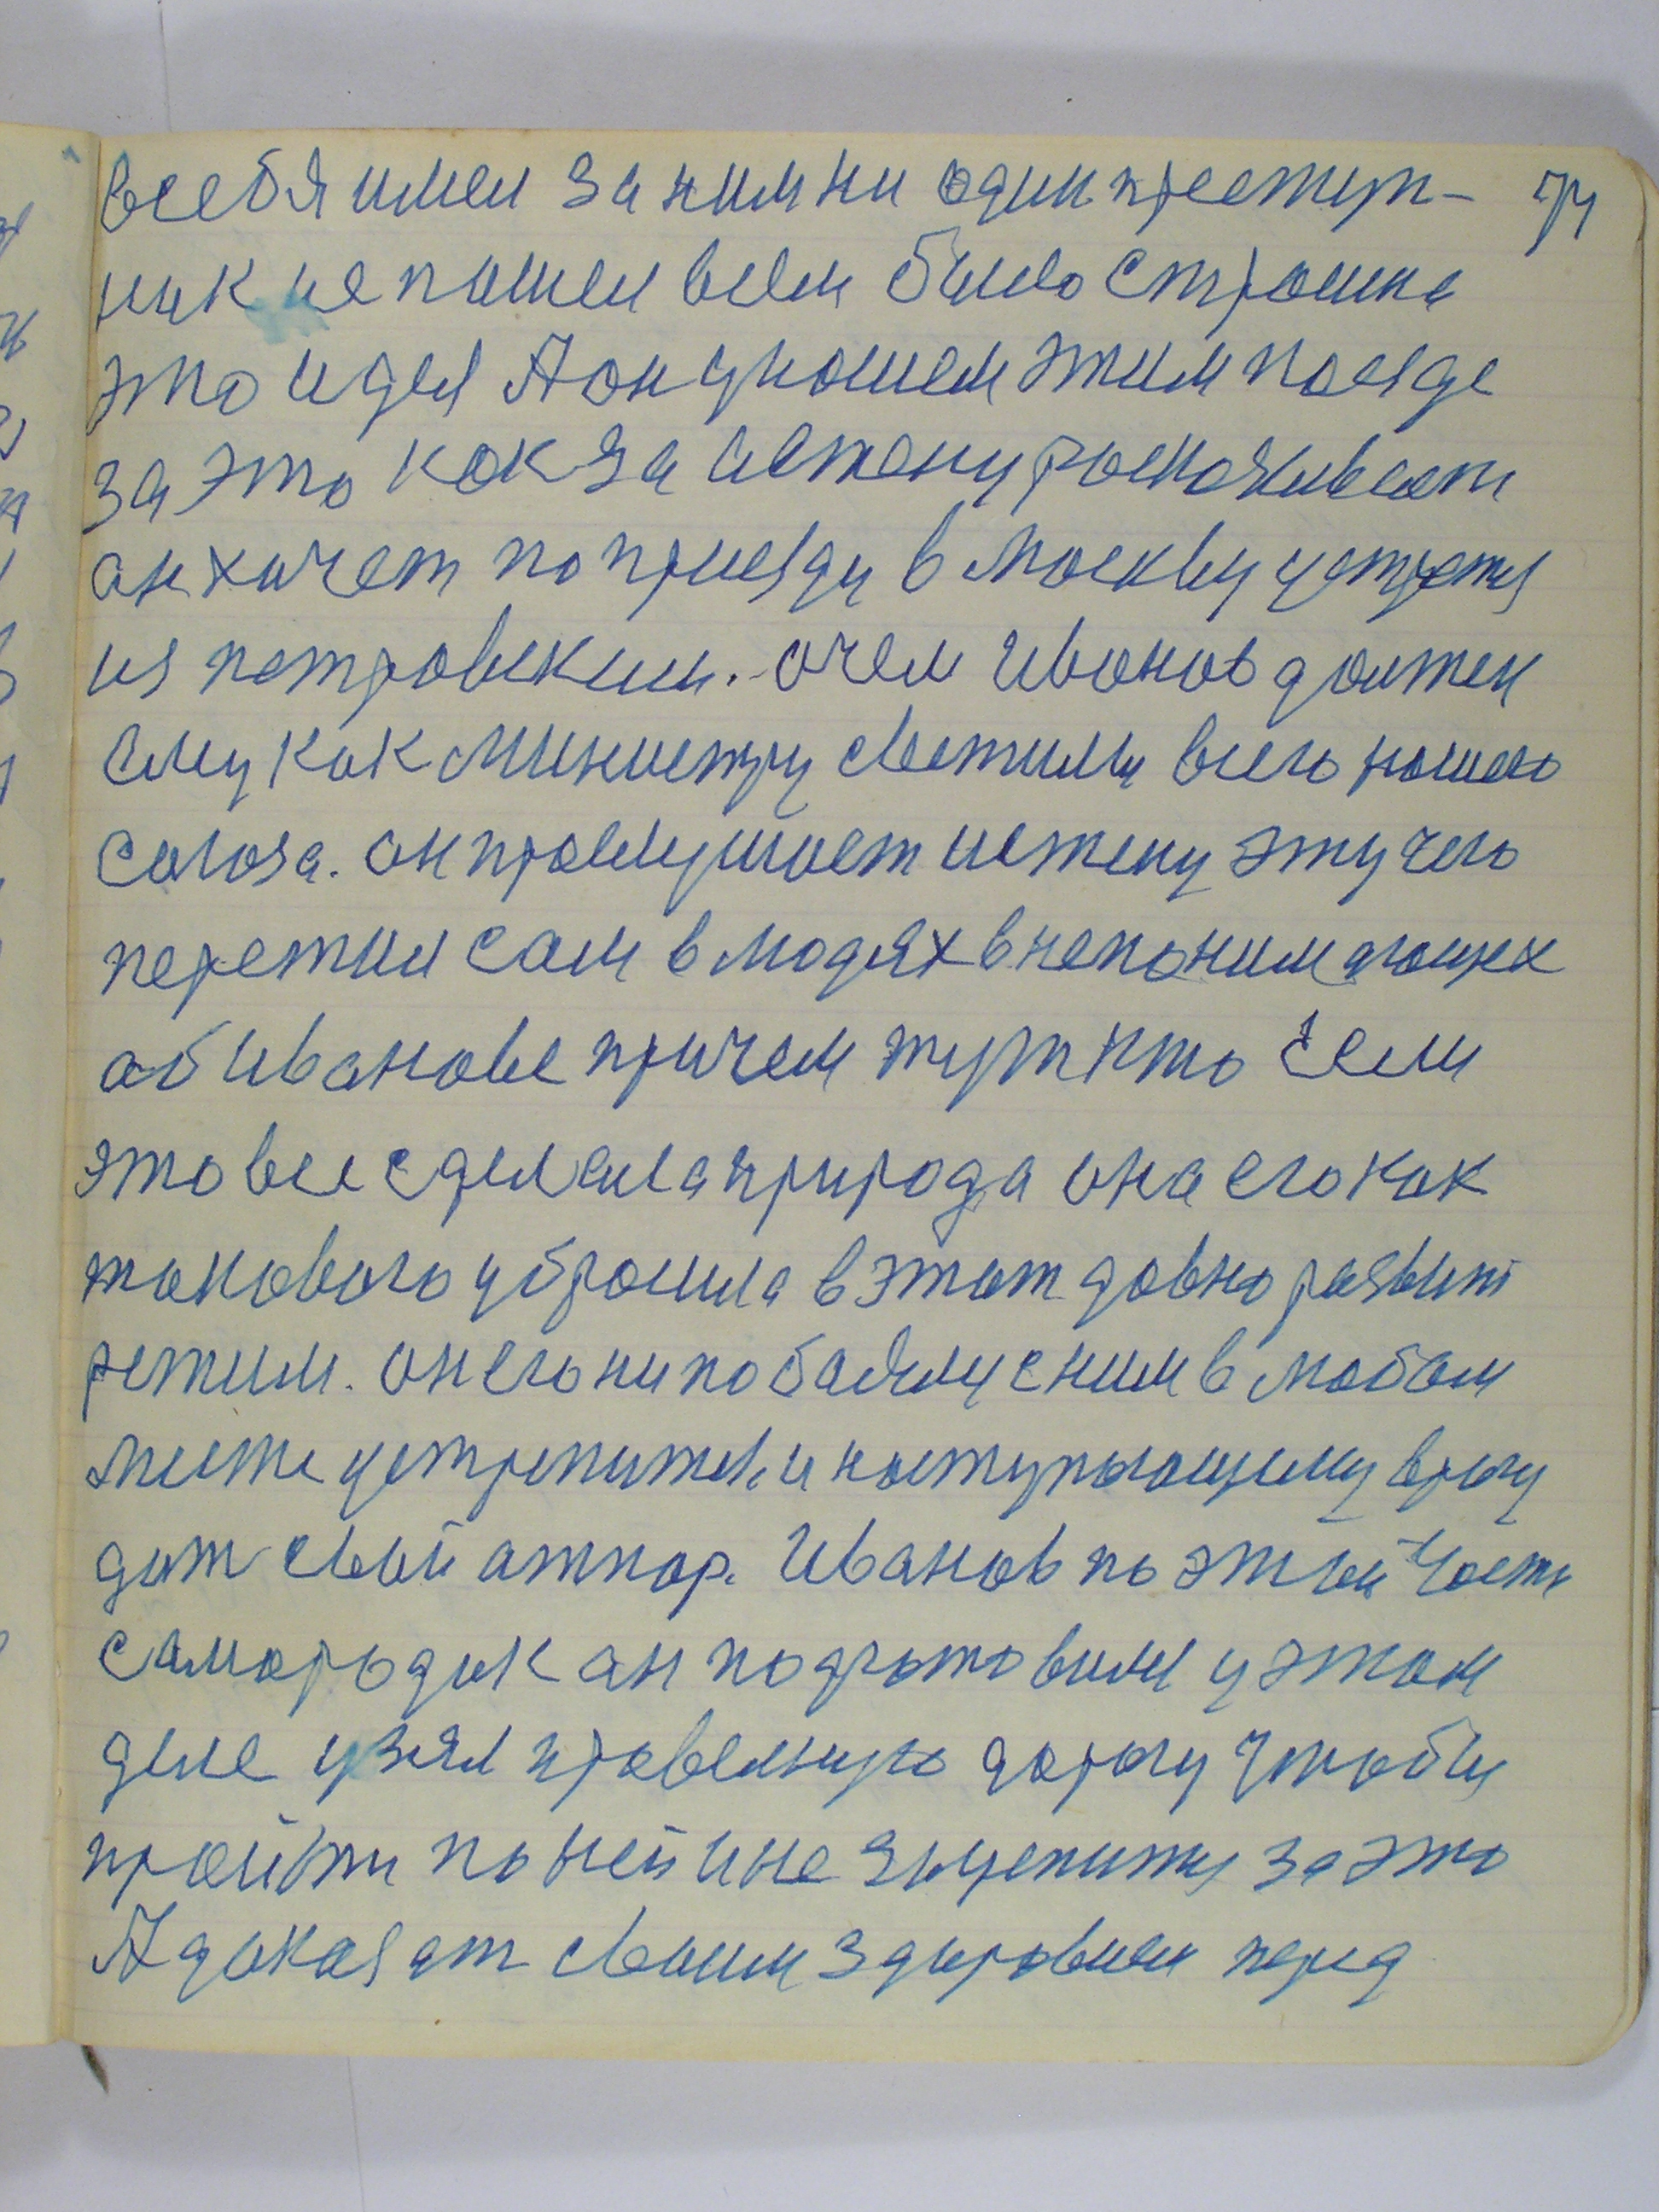 всебя имел за ним ни один преступ- 74
ник не пошел всем было страшна
это идея А он у нашем этим поезде
за это как за истену рассказывает
он хочет по приезду в Москву устретя
ця петровским. о чем Иванов должен
ему как Министру светилу всего нашего
союза. он прослушает истену эту чего
пережил сам в людях в непонимающех
об Иванове причем тут кто если
это все сделала природа она его как
такового уброшила в этот давно развит
режим. он его ни по баялму с ним в любом
месте устрепится и наступающему врагу
дат свой атпор. Иванов по этой части
самородак он подготовил у этом
деле узял правельную дорогу чтобы
пройти по ней и не зацепитця за это
А доказат своим здоровием перед